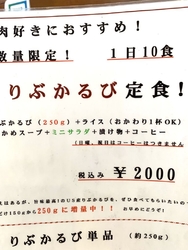 肉好きにおすすめ！
数量限定！ 1日10食
りぶかるび定食！
ぶかるび（250g）＋ライス（おかわり1杯OK）
かめスープ＋ミニサラダ＋漬け物＋コーヒー
（日曜、祝日はコーヒーはつきません
税込み ￥2000
はあるが、旨味最高！のUS産りぶかるびを、ぜひ食べてもらいたいの
だけ150gから250gに増量中！！ お早めにどうぞ！
りぶかるび単品（約250g）